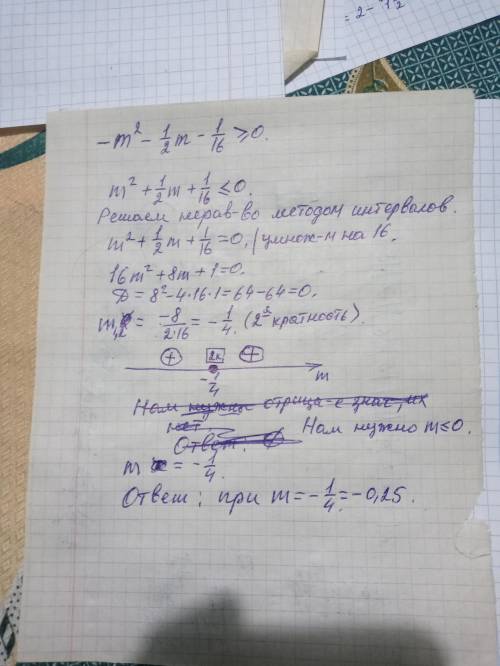 = 2 -
-m² - 1/2 m - 1/16 ≥ 0.
m² + 1/2 m + 1/16 ≤ 0.
Решаем нерав-во методом интервалов.
m² + 1/2 m + 1/16 = 0, / умнож-м на 16.
16m² + 8m + 1 = 0.
D = 8² - 4·16·1 = 64 - 64 = 0.
m₁,₂ = -8/2·16 = -1/4. (2ᵃ кратность).
+ 2к +
-1/4 m
Нам нужны отрица-е знас, их
нет. Нам нужно m ≤ 0.
Ответ.
m = -1/4.
Ответ: при m = -1/4 = -0,25.